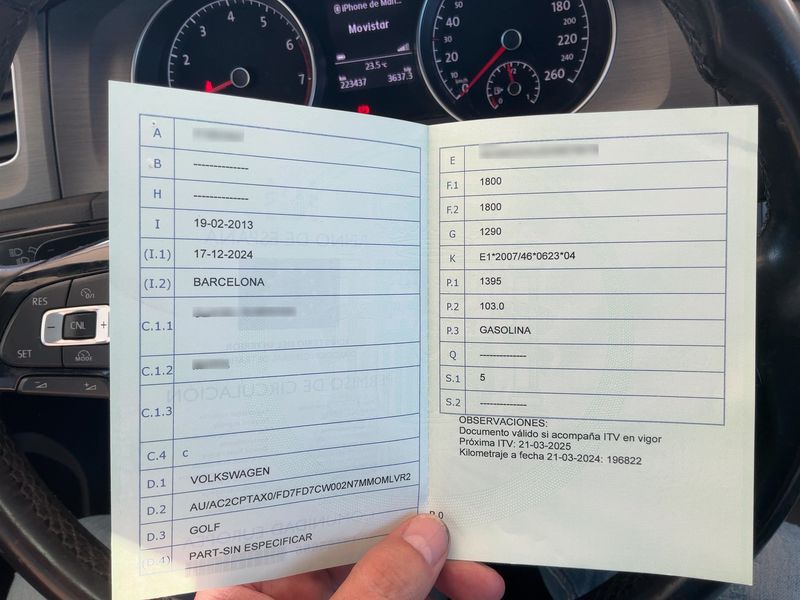 iPhone de Man...
Movistar
23.5°C
223437
3637.5
2
3
4
5
6
7
20
30
40
180
220
260
RES
CNL
SET
MODE
A
B --------------
H --------------
I 19-02-2013
(I.1) 17-12-2024
(I.2) BARCELONA
C.1.1
C.1.2
C.1.3
C.4 c
D.1 VOLKSWAGEN
D.2 AU/AC2CPTAX0/FD7FD7CW002N7MMOMLVR2
D.3 GOLF
(D.4) PART-SIN ESPECIFICAR
E
F.1 1800
F.2 1800
G 1290
K E1*2007/46*0623*04
P.1 1395
P.2 103.0
P.3 GASOLINA
Q --------------
S.1 5
S.2 --------------
OBSERVACIONES:
Documento válido si acompaña ITV en vigor
Próxima ITV: 21-03-2025
Kilometraje a fecha 21-03-2024: 196822